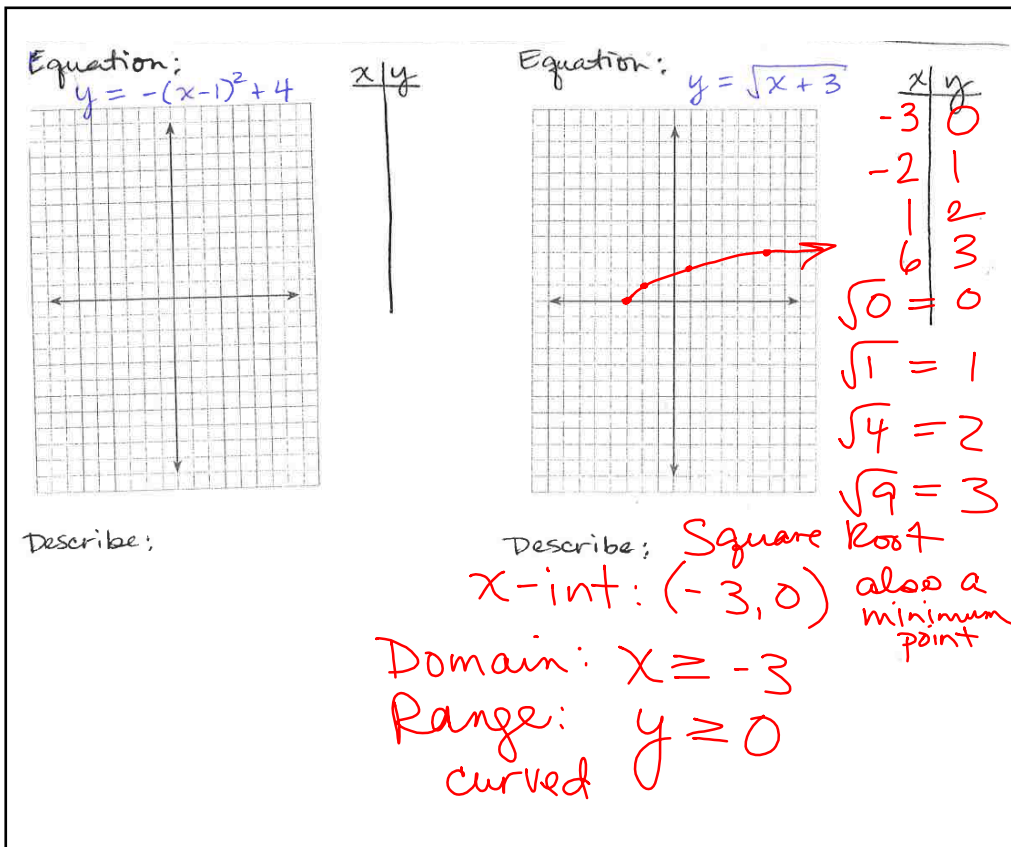 Equation:
y = -(x-1)² + 4
x | y
Describe:
Equation:
y = √x + 3
x | y
-3 | 0
-2 | 1
1 | 2
6 | 3
√0 = 0
√1 = 1
√4 = 2
√9 = 3
Describe: Square Root
x-int: (-3, 0) also a
minimum
point
Domain: x ≥ -3
Range: y ≥ 0
curved